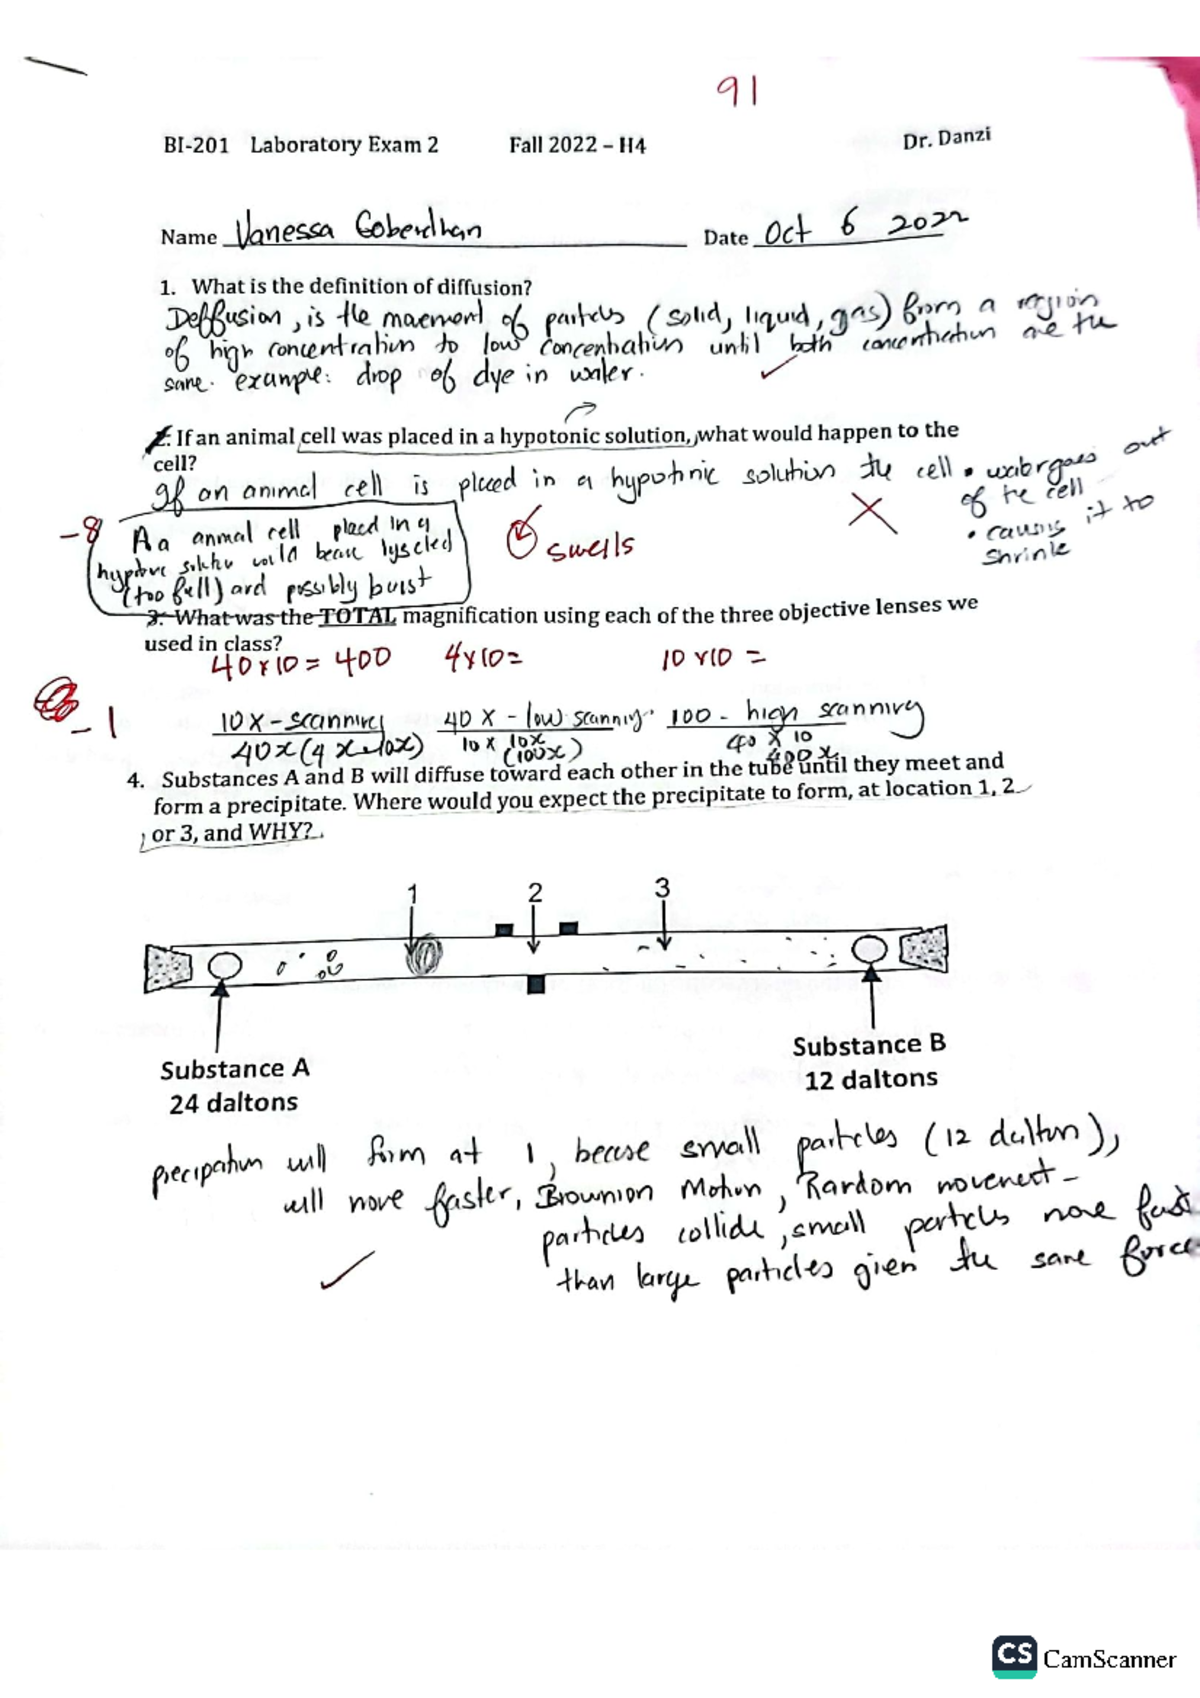 91
BI-201 Laboratory Exam 2 Fall 2022 – H4 Dr. Danzi
Name Vanessa Goberdhan Date Oct 6 2022
1. What is the definition of diffusion?
Deffusion, is the of particles (solid, liquid, gas) from a region
of high concentration to low concentration until both concentration are the
same. example: drop of dye in water.
2. If an animal cell was placed in a hypotonic solution, what would happen to the
cell?
If an animal cell is placed in a hypotinic solution the cell • out
of the cell
• causing it to
shrink
-8
A a anmal cell placed in a
would
(too full) and possibly burst
swells
3. What was the TOTAL magnification using each of the three objective lenses we
used in class?
40 x 10 = 400 4x10= 10 x10 =
-1
10x - scanning 40 x - low scanning. 100 - high scanning
40x (4 x 10x) 10 x 10x 40 x 10
(100x) 400 x
4. Substances A and B will diffuse toward each other in the tube until they meet and
form a precipitate. Where would you expect the precipitate to form, at location 1, 2
, or 3, and WHY?
1 2 3
Substance A
24 daltons
Substance B
12 daltons
precipation will form at 1, becase small particles (12 dalton),
will move faster, Brownion Motion, Random movement -
particles collide, small particles move fast
than large particles given the same force
CS CamScanner